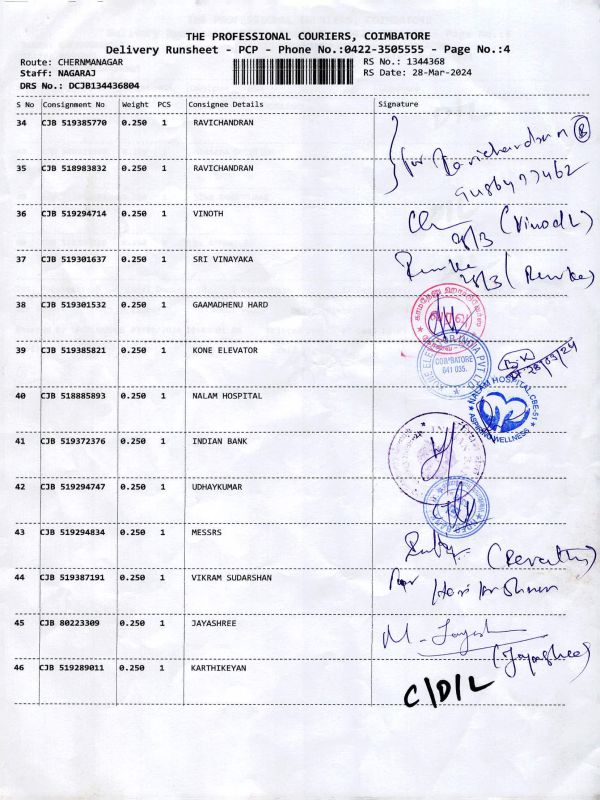 THE PROFESSIONAL COURIERS, COIMBATORE
Delivery Runsheet - PCP - Phone No.:0422-3505555 - Page No.:4
Route: CHERNMANAGAR
Staff: NAGARAJ
DRS No.: DCJB134436804
RS No.: 1344368
RS Date: 28-Mar-2024
S No Consignment No Weight PCS Consignee Details Signature
34 CJB 519385770 0.250 1 RAVICHANDRAN
for Ravichandran
35 CJB 518983832 0.250 1 RAVICHANDRAN
36 CJB 519294714 0.250 1 VINOTH
28/3 (Vinoth)
37 CJB 519301637 0.250 1 SRI VINAYAKA
Renuka 28/3 (Renuka)
38 CJB 519301532 0.250 1 GAAMADHENU HARD
39 CJB 519385821 0.250 1 KONE ELEVATOR
COIMBATORE
641 035.
28/03/24
40 CJB 518885893 0.250 1 NALAM HOSPITAL
NALAM HOSPITAL CBE-51
ASPIRING WELLNESS
41 CJB 519372376 0.250 1 INDIAN BANK
42 CJB 519294747 0.250 1 UDHAYKUMAR
43 CJB 519294834 0.250 1 MESSRS
(Revathy)
44 CJB 519387191 0.250 1 VIKRAM SUDARSHAN
for Hari krishnan
45 CJB 80223309 0.250 1 JAYASHREE
M. Jayash
(Jayashree)
46 CJB 519289011 0.250 1 KARTHIKEYAN
C/D/L